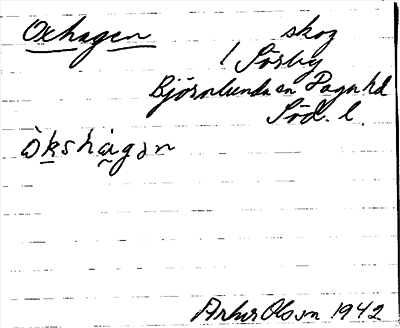 Oxhagen
skog
/ Sörby
Björnlunda sn Daga hd
Söd. l.
òkshàgən
Arthur Olsson 1942